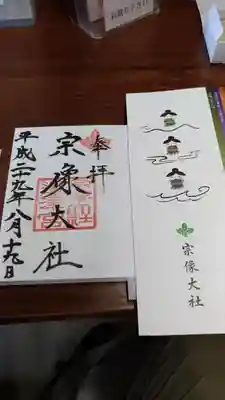 奉拝
宗像大社
平成二十九年八月十九日
宗像大社